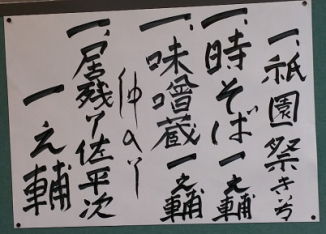 一、祇園祭 きいち
一、時そば 一之輔
一、味噌蔵 一之輔
仲入り
一、居残り佐平次
一之輔